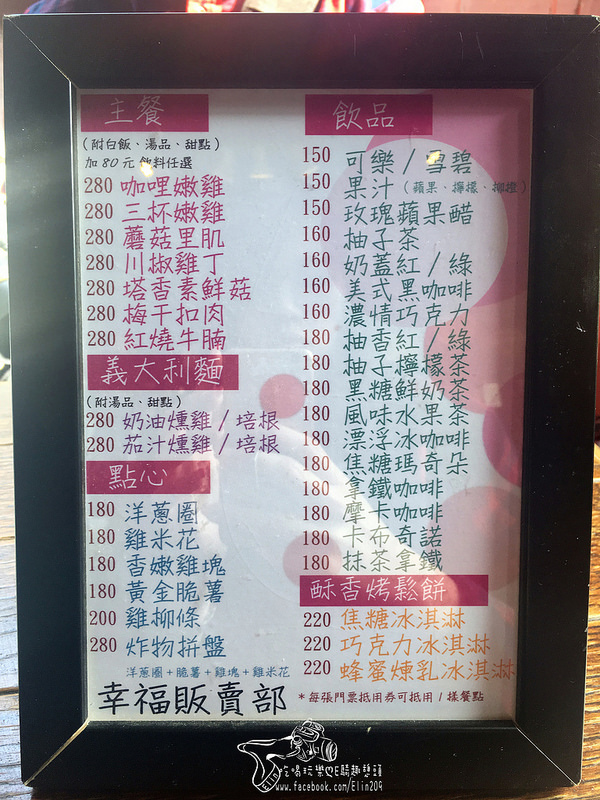 主餐
(附白飯、湯品、甜點)
加 80 元 飲料任選
280 咖哩嫩雞
280 三杯嫩雞
280 蘑菇里肌
280 川椒雞丁
280 塔香素鮮菇
280 梅干扣肉
280 紅燒牛腩
義大利麵
(附湯品、甜點)
280 奶油燻雞/培根
280 茄汁燻雞/培根
點心
180 洋蔥圈
180 雞米花
180 香嫩雞塊
180 黃金脆薯
200 雞柳條
280 炸物拼盤
洋蔥圈+脆薯+雞塊+雞米花
幸福販賣部
飲品
150 可樂/雪碧
150 果汁 (蘋果、檸檬、柳橙)
150 玫瑰蘋果醋
160 柚子茶
160 奶蓋紅/綠
160 美式黑咖啡
160 濃情巧克力
180 柚香紅/綠
180 柚子檸檬茶
180 黑糖鮮奶茶
180 風味水果茶
180 漂浮冰咖啡
180 焦糖瑪奇朵
180 拿鐵咖啡
180 摩卡咖啡
180 卡布奇諾
180 抹茶拿鐵
酥香烤鬆餅
220 焦糖冰淇淋
220 巧克力冰淇淋
220 蜂蜜煉乳冰淇淋
*每張門票抵用券可抵用1樣餐點
www.facebook.com/Elin209